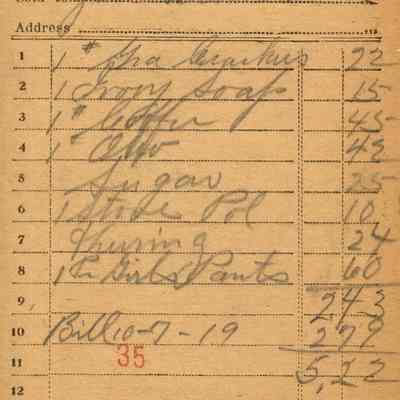 Address
1 1# Gra Crackers 22
2 1 Ivory Soap 15
3 1# Coffee 45
4 1" Oleo 42
5 Sugar 25
6 1 Stove Pol 10
7 24
8 1 Pr Girls Pants 60
9 243
10 Bill 10-7-19 279
11 35 5,22
12